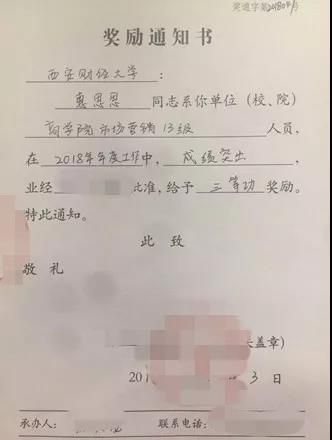 奖通字第201804号
奖励通知书
西安财经大学：
惠恩恩 同志系你单位（校、院）
商学院市场营销13级 人员，
在 2018年年度工作中，成绩突出，
业经 批准，给予 三等功 奖励。
特此通知。
此 致
敬 礼
盖章）
201 3 日
承办人： 联系电话：